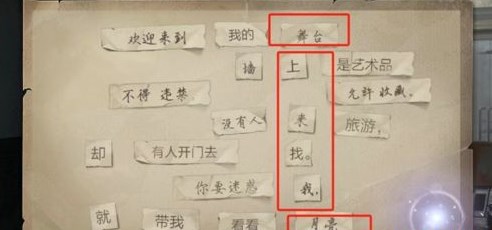 欢迎来到 我的 舞台
墙 上 是艺术品
不得 违禁、 允许 收藏。
没有人 来 旅游，
却 有人开门去 找。
你要迷惑 我，
就 带我 看看 月亮